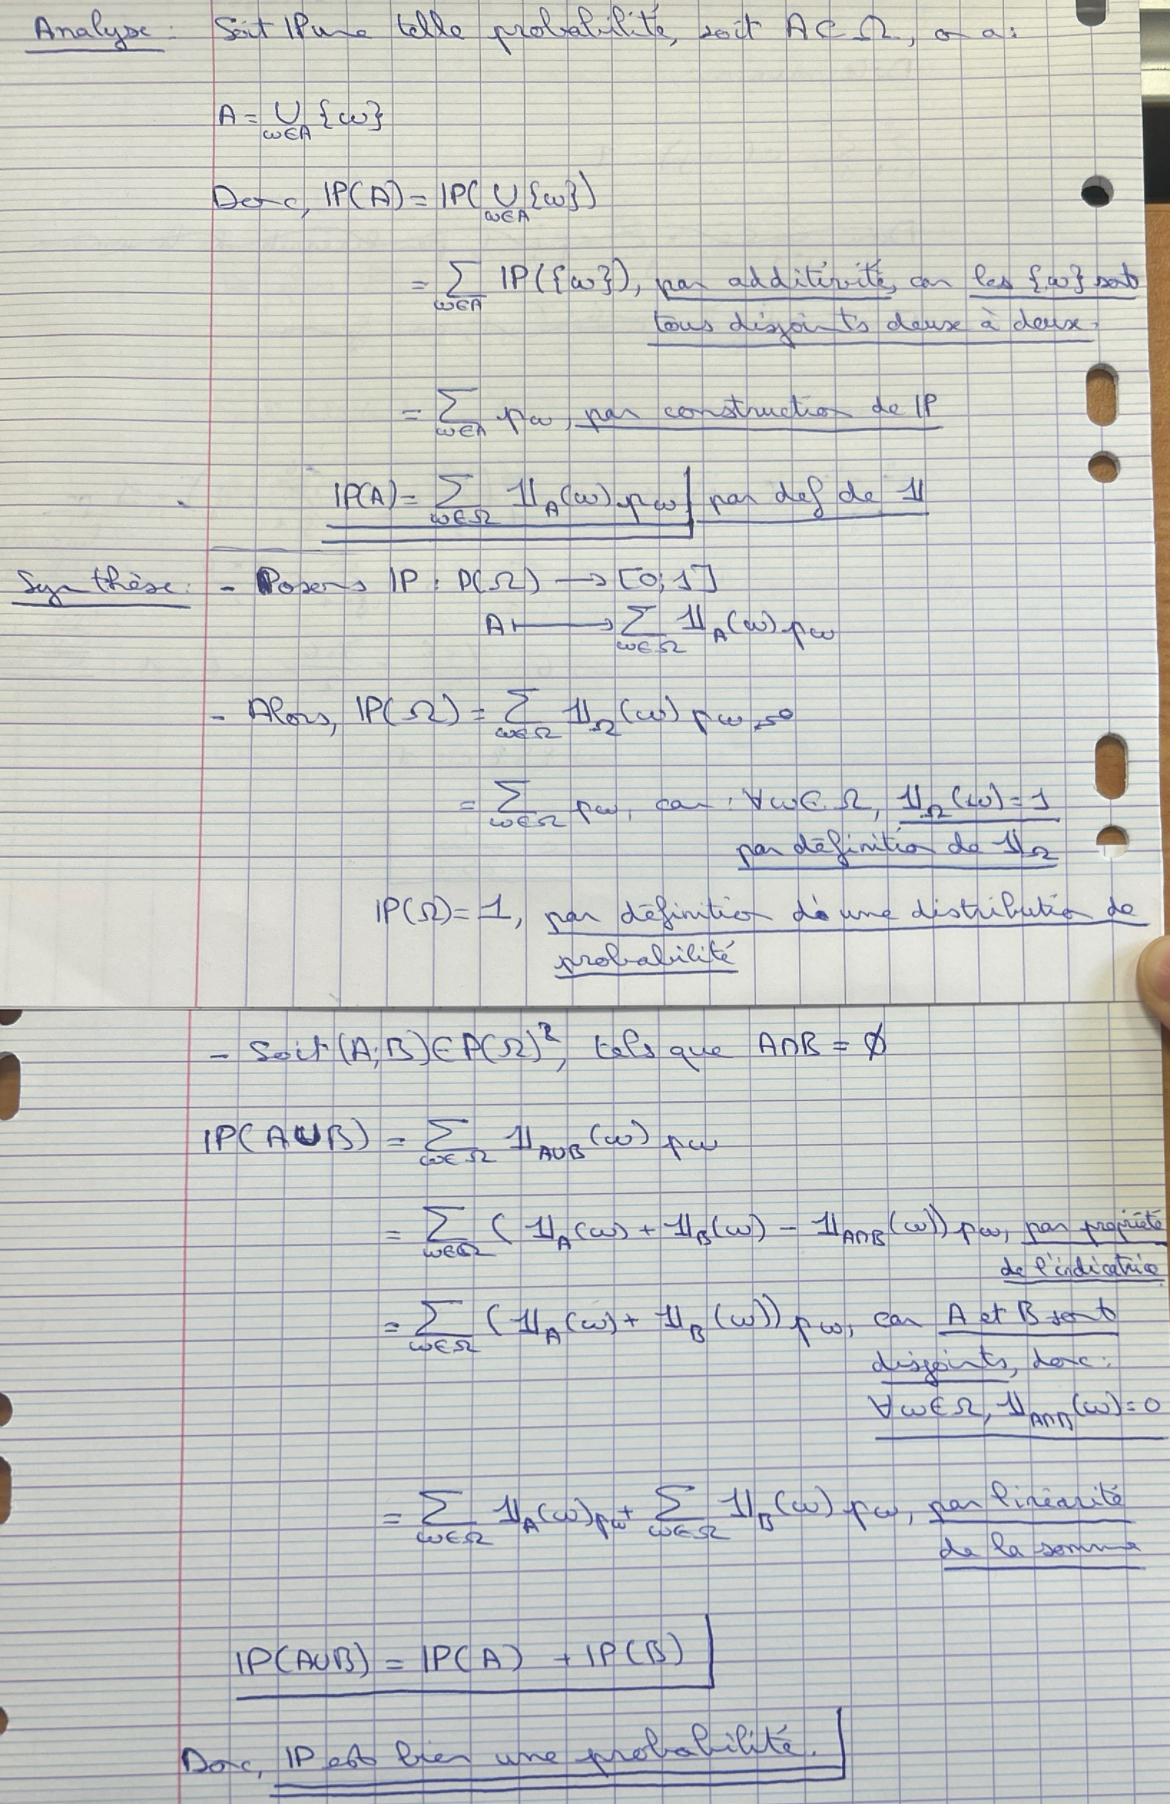 Analyse : Soit ℙ une telle probabilité, soit A ⊂ Ω, on a :
A = ∪_{ω∈A} {ω}
Donc, ℙ(A) = ℙ(∪_{ω∈A} {ω})
= ∑_{ω∈A} ℙ({ω}), par additivité, car les {ω} sont
tous disjoints deux à deux.
= ∑_{ω∈A} p_ω, par construction de ℙ
ℙ(A) = ∑_{ω∈Ω} 𝟙_A(ω) p_ω | par def de 𝟙
Synthèse : - Posons ℙ : P(Ω) → [0;1]
A ↦ ∑_{ω∈Ω} 𝟙_A(ω) p_ω
- Alors, ℙ(Ω) = ∑_{ω∈Ω} 𝟙_Ω(ω) p_ω,
= ∑_{ω∈Ω} p_ω, car : ∀ω∈Ω, 𝟙_Ω(ω) = 1
par définition de 𝟙_Ω
ℙ(Ω) = 1, par définition d'une distribution de
probabilité
- Soit (A;B) ∈ P(Ω)², tels que A∩B = ∅
ℙ(A∪B) = ∑_{ω∈Ω} 𝟙_{A∪B}(ω) p_ω
= ∑_{ω∈Ω} (𝟙_A(ω) + 𝟙_B(ω) - 𝟙_{A∩B}(ω)) p_ω, par propriété
de l'indicatrice
= ∑_{ω∈Ω} (𝟙_A(ω) + 𝟙_B(ω)) p_ω, car A et B sont
disjoints, donc :
∀ω∈Ω, 𝟙_{A∩B}(ω) = 0
= ∑_{ω∈Ω} 𝟙_A(ω) p_ω + ∑_{ω∈Ω} 𝟙_B(ω) p_ω, par linéarité
de la somme
ℙ(A∪B) = ℙ(A) + ℙ(B)
Donc, ℙ est bien une probabilité.